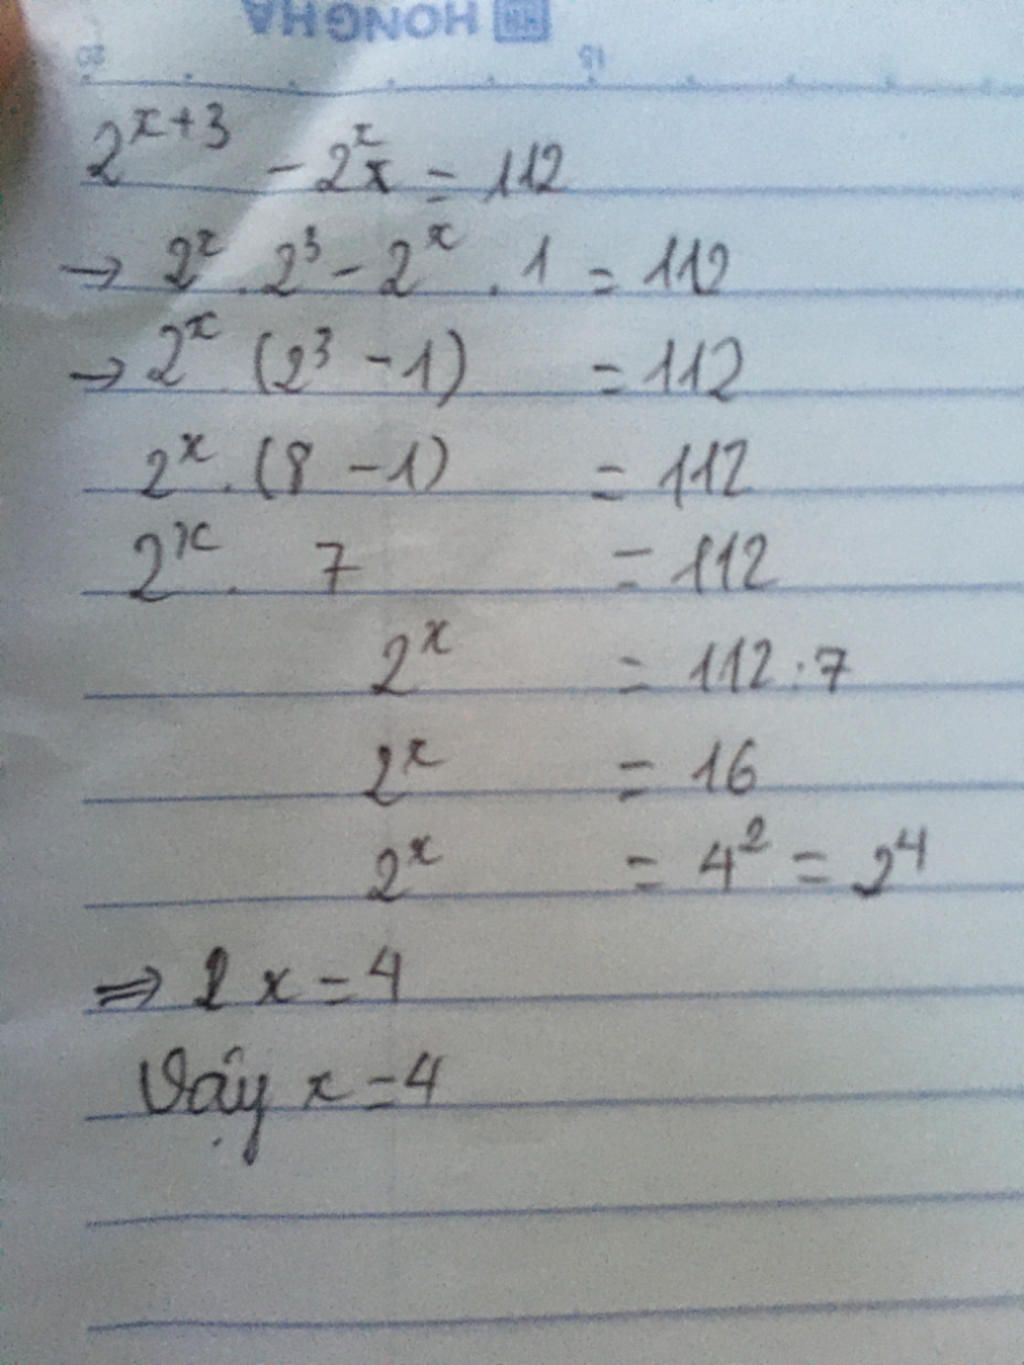 HONG HA
20 15
2^{x+3} - 2^x x = 112
→ 2^x . 2^3 - 2^x . 1 = 112
→ 2^x . (2^3 - 1) = 112
2^x . (8 - 1) = 112
2^x . 7 = 112
2^x = 112 : 7
2^x = 16
2^x = 4^2 = 2^4
⇒ x = 4
Vậy x = 4